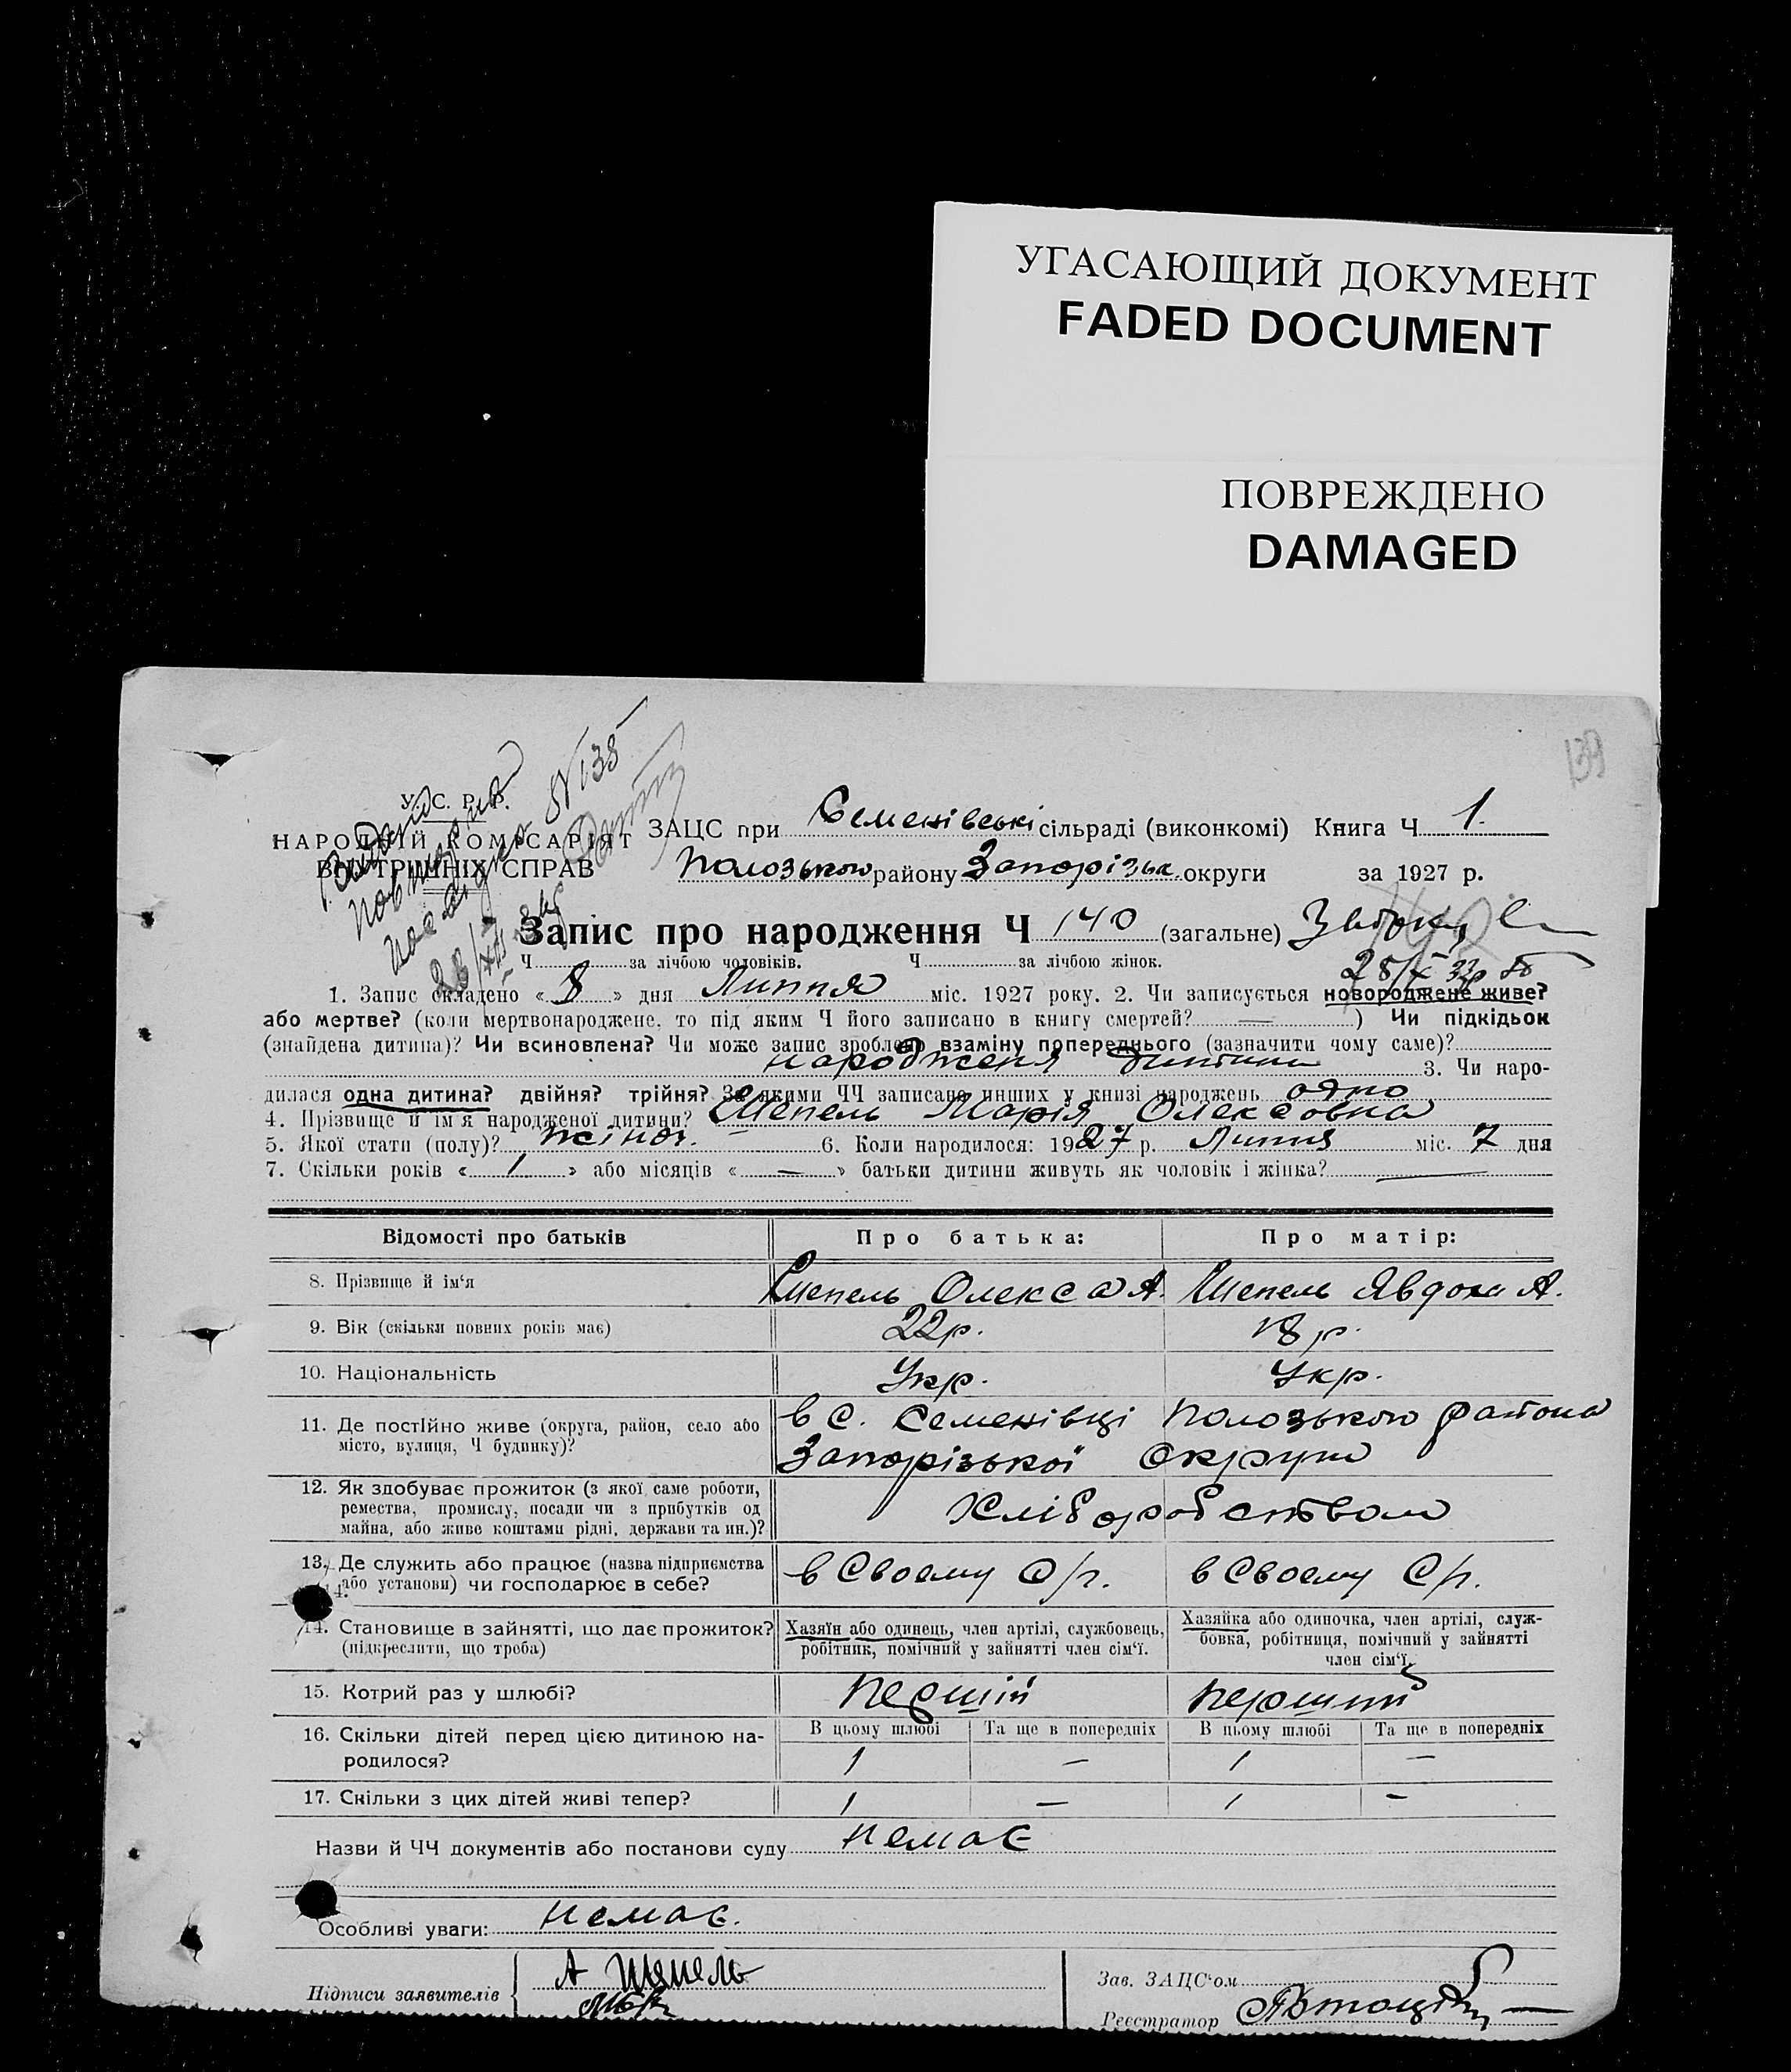 УГАСАЮЩИЙ ДОКУМЕНТ
FADED DOCUMENT
ПОВРЕЖДЕНО
DAMAGED
139
У. С. Р. Р.
НАРОДНІЙ КОМІСАРІЯТ
ВНУТРІШНІХ СПРАВ
Видано
повторно
N 135
ЗАЦС при Семенівські сільраді (виконкомі) Книга Ч 1.
Полозького району Запорізьк. округи за 1927 р.
Запис про народження Ч 140 (загальне)
Ч за лічбою чоловіків. Ч за лічбою жінок.
1. Запис складено « 8 » дня Липня міс. 1927 року. 2. Чи записується новороджене живе?
або мертве? (коли мертвонароджене, то під яким Ч його записано в книгу смертей? — ) Чи підкідьок
(знайдена дитина)? Чи всиновлена? Чи може запис зроблено взаміну попереднього (зазначити чому саме)?
народженя дитини 3. Чи наро-
дилася одна дитина? двійня? трійня? За якими ЧЧ записано инших у книзі народжень одно
4. Прізвище й ім'я народженої дитини? Шепель Марія Олексовна
5. Якої стати (полу)? жіноч. 6. Коли народилося: 1927 р. Липня міс. 7 дня
7. Скільки років « 1 » або місяців « — » батьки дитини живуть як чоловік і жінка? —
Відомості про батьків Про батька: Про матір:
8. Прізвище й ім'я Шепель Олекса А. Шепель Явдоха А.
9. Вік (скільки повних років має) 22р. 18 р.
10. Національність Укр. Укр.
11. Де постійно живе (округа, район, село або в с. Семенівці Полозького района
місто, вулиця, Ч будинку)? Запорізької округи
12. Як здобуває прожиток (з якої саме роботи,
ремества, промислу, посади чи з прибутків од Хліборобством
майна, або живе коштами рідні, держави та ин.)?
13. Де служить або працює (назва підприємства в Своему С/г. в Своему С/г.
або установи) чи господарює в себе?
14. Становище в зайнятті, що дає прожиток? Хазяїн або одинець, член артілі, службовець, Хазяйка або одиночка, член артілі, служ-
(підкреслити, що треба) робітник, помічний у зайнятті член сім'ї. бовка, робітниця, помічний у зайнятті
член сім'ї.
15. Котрий раз у шлюбі? Перший Перший
16. Скільки дітей перед цією дитиною на- В цьому шлюбі Та ще в попередніх В цьому шлюбі Та ще в попередніх
родилося? 1 — 1 —
17. Скільки з цих дітей живі тепер? 1 — 1 —
Назви й ЧЧ документів або постанови суду немає
Особливі уваги: немає.
Підписи заявителів А Шепель
Зав. ЗАЦС'ом
Реєстратор